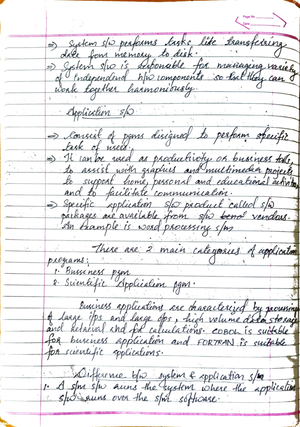 Page No.
⇒ System s/w performs tasks like transferring
data from memory to disk.
⇒ System s/w is responsible for managing variety
of independent h/w components so that they can
work together harmoniously.
Application s/w
⇒ Consist of pgms designed to perform specific
task of users.
⇒ It can be used as productivity or business tools,
to assist with graphics and multimedia projects
to support home, personal and educational activities
and to facilitate communication.
⇒ Specific application s/w product called s/w
packages are available from s/w vendors.
An Example is word processing s/m
There are 2 main categories of application
programs:
1. Bussiness pgm
2. Scientific Application pgm.
Business applications are characterized by processing
of large i/ps and large o/ps, high volume data storage
and retrieval and for calculations. COBOL is suitable
for business application and FORTRAN is suitable
for scientific applications.
Difference b/w system & application s/m
1. A s/m s/w runs the system where the application
s/w runs over the s/m software.